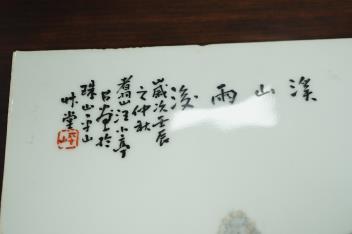 溪山雨後
歲次壬辰
之仲秋
耆山汪小亭
於
珠山平山
堂